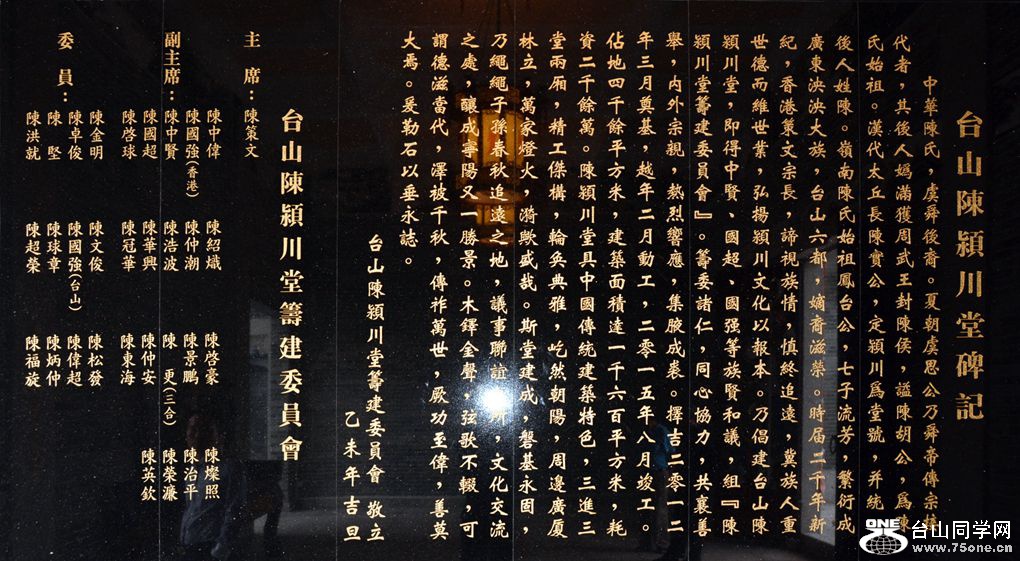 台山陳潁川堂碑記
中華陳氏，虞舜後裔。夏朝虞思公乃舜帝傳宗
代者，其後人媯滿獲周武王封陳侯，謚陳胡公，爲陳
氏始祖。漢代太丘長陳實公，定潁川爲堂號，并統
後人姓陳。嶺南陳氏始祖鳳台公，七子流芳，繁衍成
廣東泱泱大族，台山六都，嫡裔滋榮。時届二千年新
紀，香港策文宗長，諦視族情，慎終追遠，冀族人重
世德而維世業，弘揚潁川文化以報本。乃倡建台山陳
潁川堂，即得中賢、國超、國强等族賢和議，組『陳
潁川堂籌建委員會』。籌委諸仁，同心協力，共襄善
舉，内外宗親，熱烈響應，集腋成裘。擇吉二零一二
年三月奠基，越年二月動工，二零一五年八月竣工。
佔地四千餘平方米，建築面積達一千六百平方米，耗
資二千餘萬。陳潁川堂具中國傳統建築特色，三進三
堂兩厢，精工傑構，輪奂典雅，屹然朝陽，周邊廣厦
林立，萬家燈火，漪歟盛哉。斯堂建成，磐基永固，
乃繩繩子孫春秋追遠之地，議事聯誼之所，文化交流
之處，釀成寧陽又一勝景。木鐸金聲，弦歌不輟，可
謂德滋當代，澤被千秋，傳祚萬世，厥功至偉，善莫
大焉。爰勒石以垂永誌。
台山陳潁川堂籌建委員會 敬立
乙未年吉旦
台山陳潁川堂籌建委員會
主席：陳策文
副主席：陳中偉 陳紹熾 陳啓豪 陳燦照
陳國強(香港) 陳仲潮 陳景鵬 陳治平
陳中賢 陳浩波 陳更(三合) 陳榮濂
陳國超 陳華興 陳仲安 陳英欽
陳啓球 陳冠華 陳東海
委員：陳金明 陳文俊 陳松發
陳卓俊 陳國強(台山) 陳偉超
陳堅 陳球章 陳炳仲
陳洪就 陳超榮 陳福旋
ONE
台山同学网
www.75one.cn